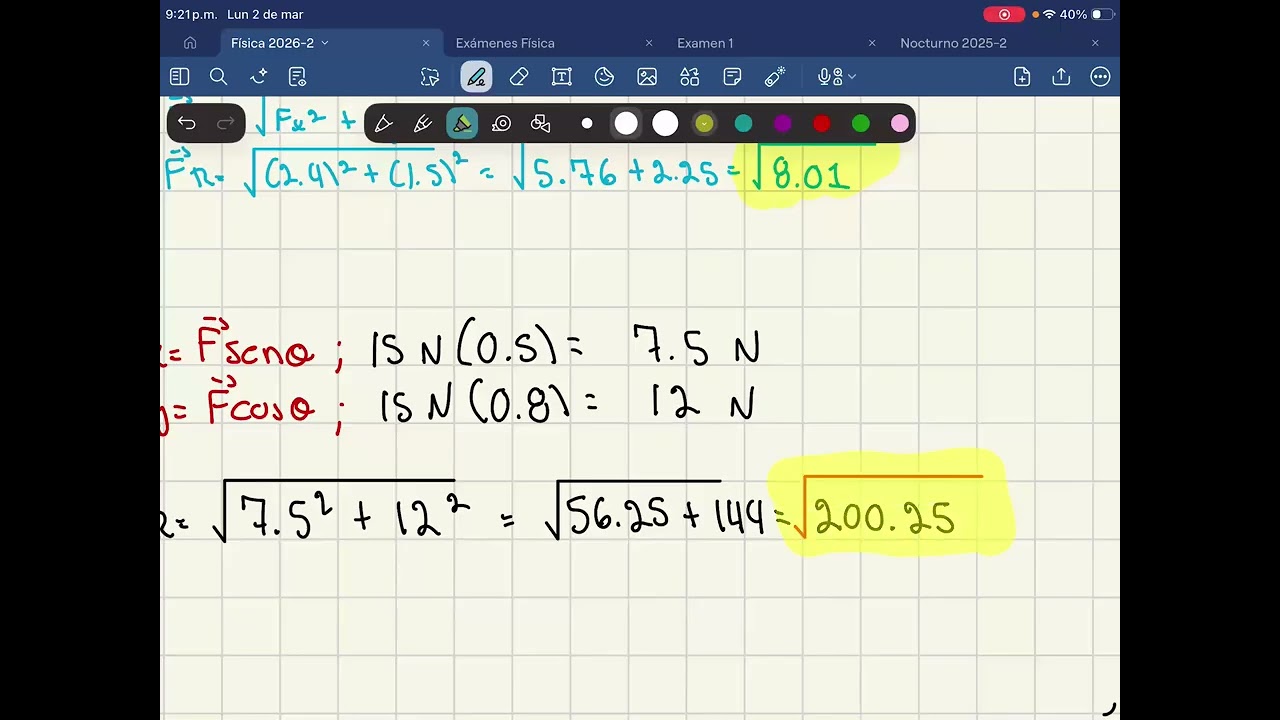 9:21 p.m. Lun 2 de mar 40%
Física 2026-2 Exámenes Física Examen 1 Nocturno 2025-2
√Fx² +
F⃗R= √(2.4)² + (1.5)² = √5.76 + 2.25 = √8.01
= F⃗senθ ; 15 N (0.5) = 7.5 N
y= F⃗cosθ ; 15 N (0.8) = 12 N
R= √7.5² + 12² = √56.25 + 144 = √200.25